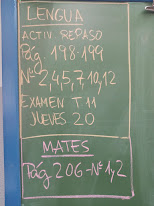 LENGUA
ACTIV REPASO
Pág. 198-199
Nº 2,4,5,7,10,12
EXAMEN T11
JUEVES 20
MATES
Pág 206-Nº1,2